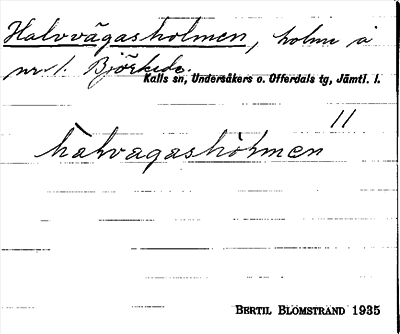 Halvvägasholmen, holme å
nr 1. Björkede.
Kalls sn, Undersåkers o. Offerdals tg, Jämtl. l.
11
hàlvagashòlmen
BERTIL BLOMSTRAND 1935